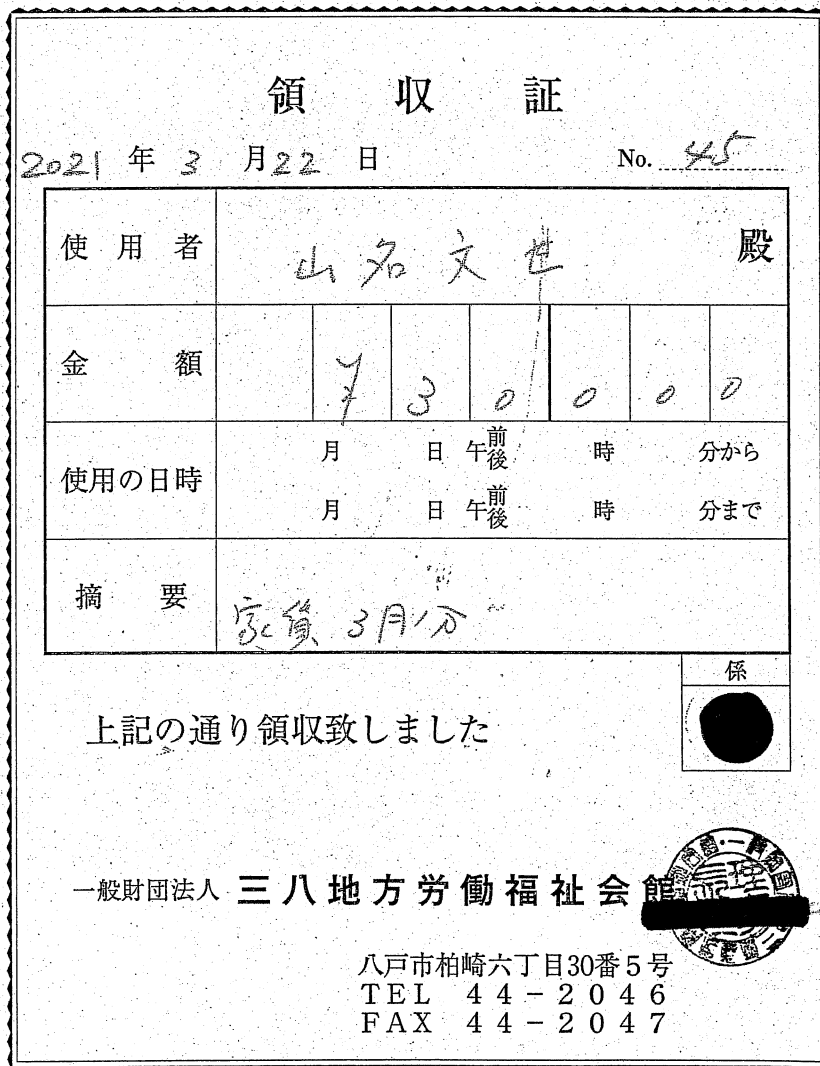 領収証
2021年3月22日 No. 45
使用者 山名文世 殿
金額 ¥30000
使用の日時 月 日 午前後 時 分から
月 日 午前後 時 分まで
摘要 家賃 3月分
係
上記の通り領収致しました
一般財団法人 三八地方労働福祉会館
八戸市柏崎六丁目30番5号
TEL 44-2046
FAX 44-2047